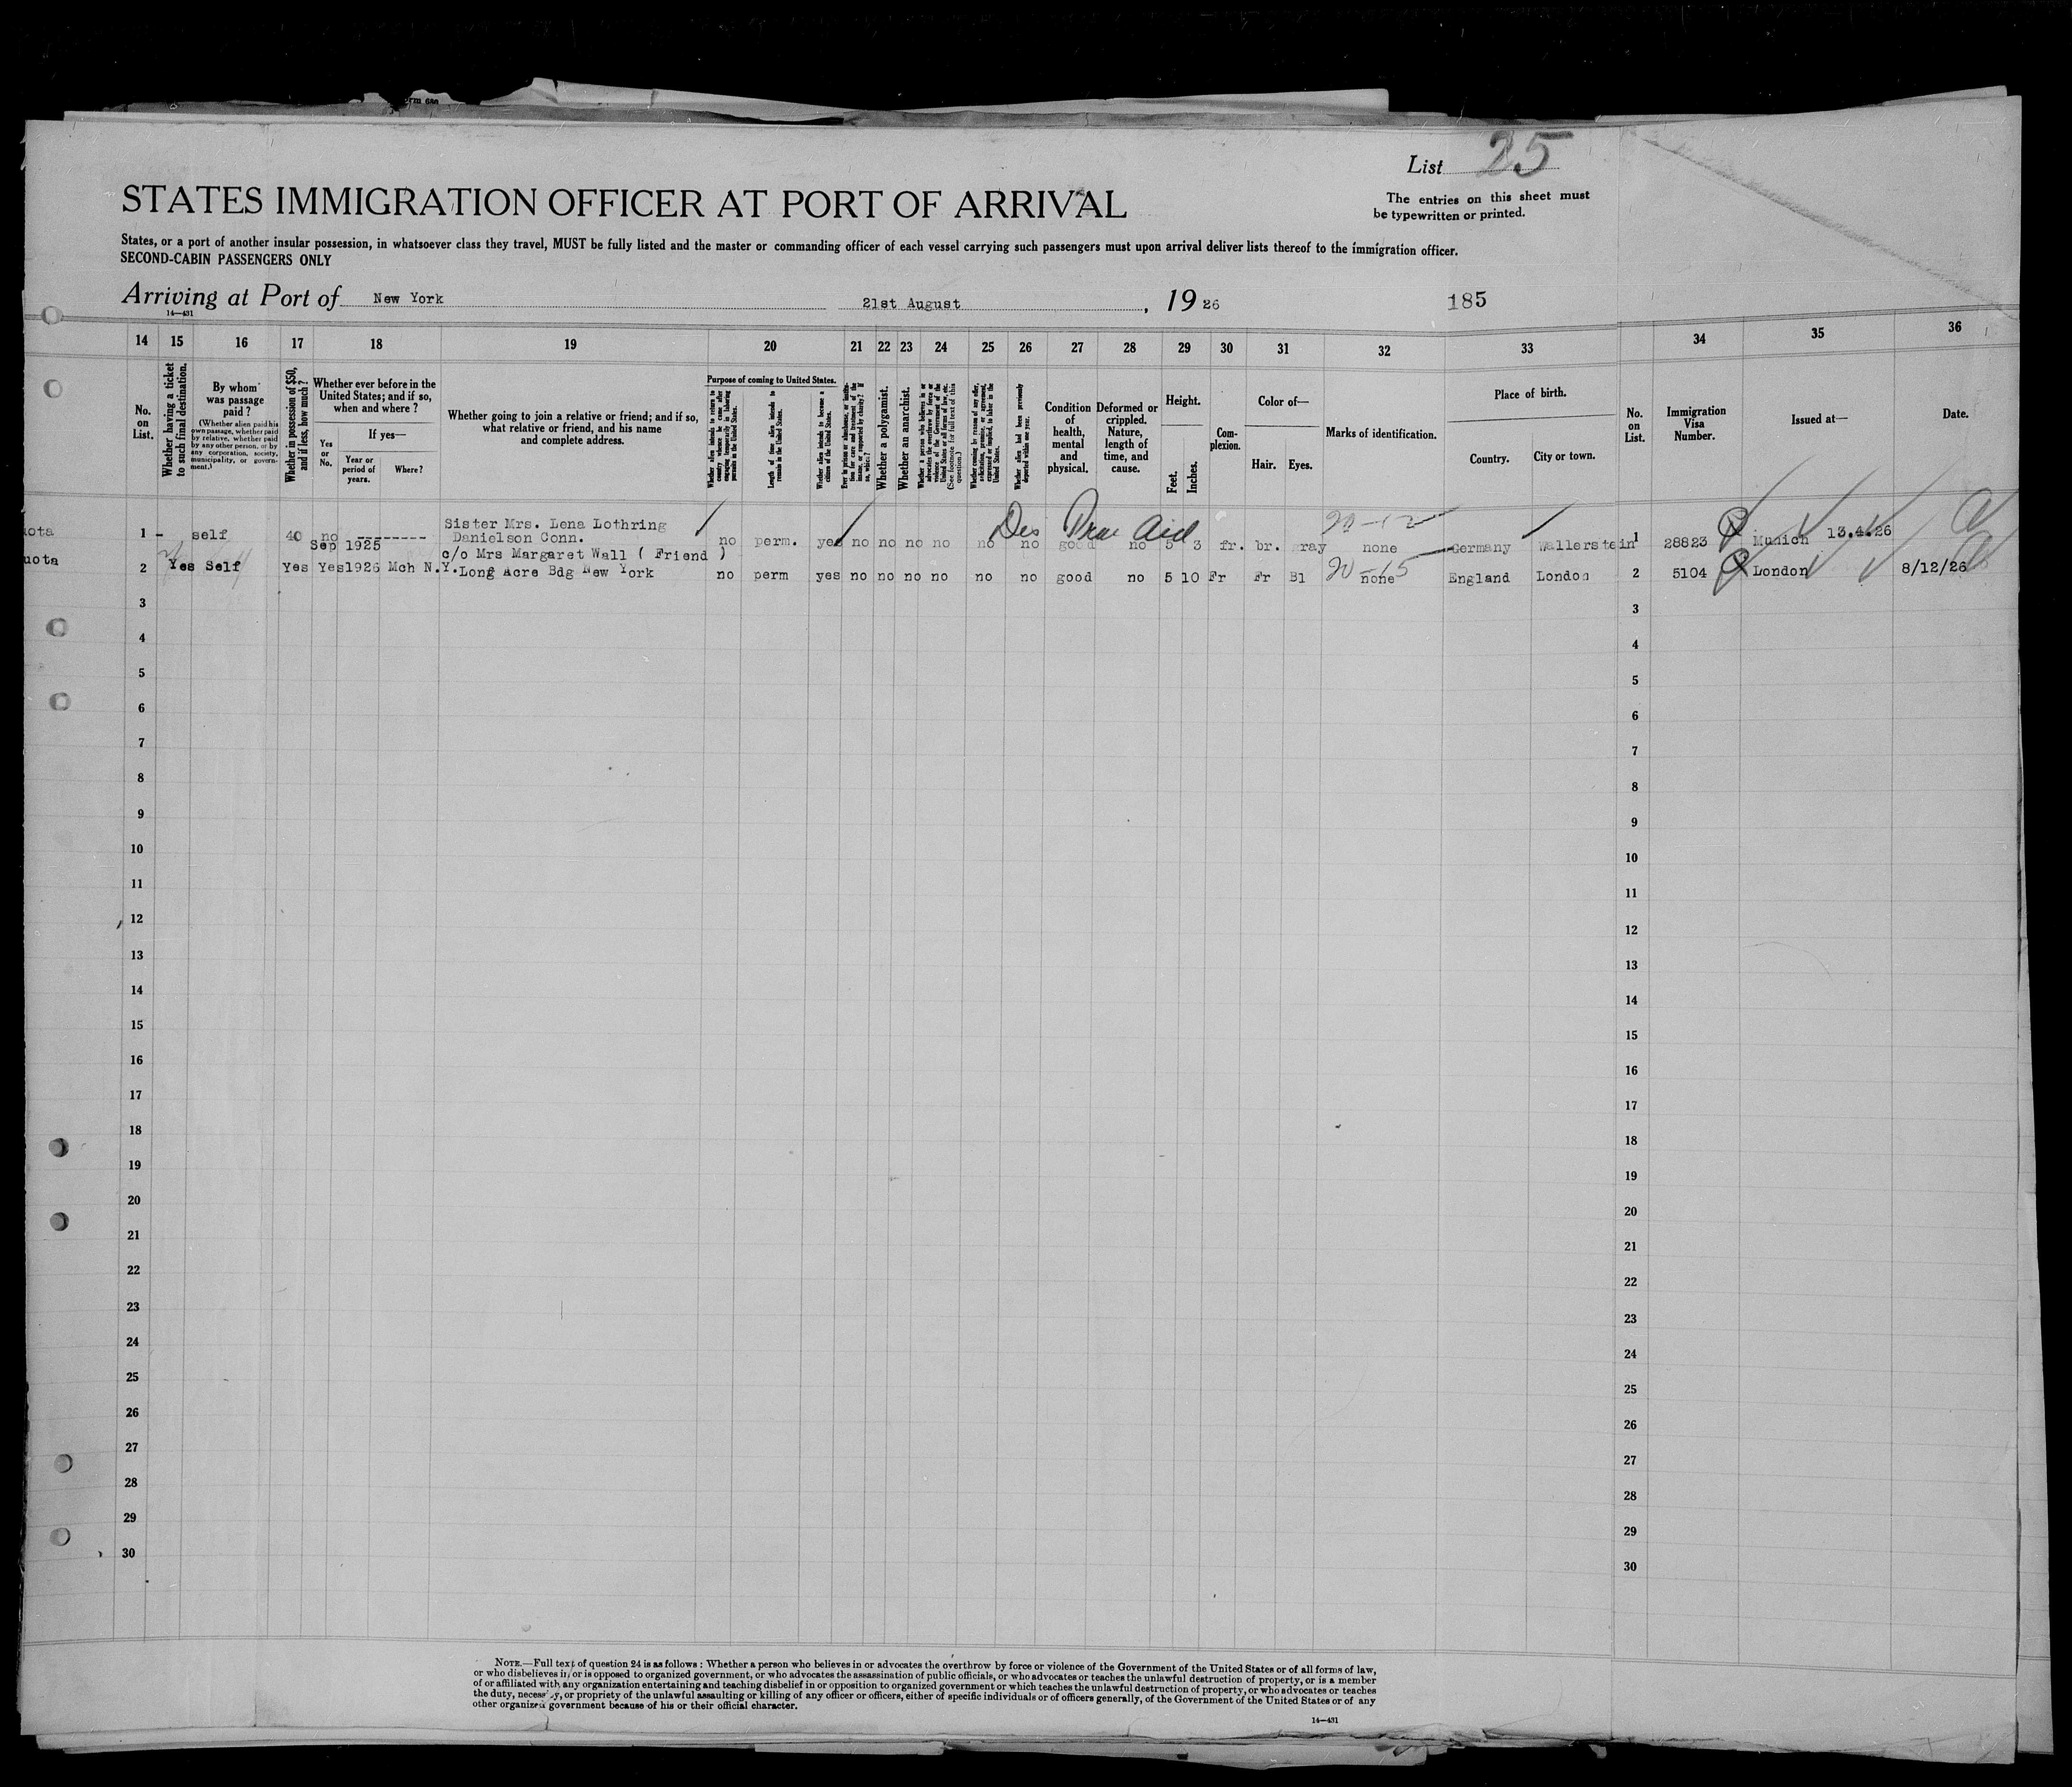 List 25
STATES IMMIGRATION OFFICER AT PORT OF ARRIVAL
The entries on this sheet must
be typewritten or printed.
States, or a port of another insular possession, in whatsoever class they travel, MUST be fully listed and the master or commanding officer of each vessel carrying such passengers must upon arrival deliver lists thereof to the immigration officer.
SECOND-CABIN PASSENGERS ONLY
Arriving at Port of New York 21st August, 1926 185
14—431
14 15 16 17 18 19 20 21 22 23 24 25 26 27 28 29 30 31 32 33 34 35 36
No. on List.
Whether having a ticket to such final destination.
By whom was passage paid?
(Whether alien paid his own passage, whether paid by relative, whether paid by any other person, or by any corporation, society, municipality, or government.)
Whether in possession of $50, and if less, how much?
Whether ever before in the United States; and if so, when and where?
Yes or No.
If yes—
Year or period of years.
Where?
Whether going to join a relative or friend; and if so, what relative or friend, and his name and complete address.
Purpose of coming to United States.
Whether alien intends to return to country whence he came after engaging temporarily in laboring pursuits in the United States.
Length of time alien intends to remain in the United States.
Whether alien intends to become a citizen of the United States.
Ever in prison or almshouse, or institution for care and treatment of the insane, or supported by charity? If so, which?
Whether a polygamist.
Whether an anarchist.
Whether a person who believes in or advocates the overthrow by force or violence of the Government of the United States or all forms of law, etc. (See footnote for full text of this question.)
Whether coming by reason of any offer, solicitation, promise, or agreement, expressed or implied, to labor in the United States.
Whether alien had been previously deported within one year.
Condition of health, mental and physical.
Deformed or crippled. Nature, length of time, and cause.
Height.
Feet.
Inches.
Complexion.
Color of—
Hair.
Eyes.
Marks of identification.
Place of birth.
Country.
City or town.
No. on List.
Immigration Visa Number.
Issued at—
Date.
uota 1 - self 40 no -------- Sister Mrs. Lena Lothring
Danielson Conn. no perm. yes no no no no no no good no 5 3 fr. br. gray 20-12 none Germany Wallerstein 1 28823 Munich 13.4.26
Sep 1925 c/o Mrs Margaret Wall ( Friend )
uota 2 Yes Self Yes Yes 1926 Mch N.Y. Long Acre Bdg New York no perm yes no no no no no no good no 5 10 Fr Fr Bl 20-15 none England London 2 5104 London 8/12/26
3 3
4 4
5 5
6 6
7 7
8 8
9 9
10 10
11 11
12 12
13 13
14 14
15 15
16 16
17 17
18 18
19 19
20 20
21 21
22 22
23 23
24 24
25 25
26 26
27 27
28 28
29 29
30 30
NOTE.—Full text of question 24 is as follows: Whether a person who believes in or advocates the overthrow by force or violence of the Government of the United States or of all forms of law,
or who disbelieves in or is opposed to organized government, or who advocates the assassination of public officials, or who advocates or teaches the unlawful destruction of property, or is a member
of or affiliated with any organization entertaining and teaching disbelief in or opposition to organized government or which teaches the unlawful destruction of property, or who advocates or teaches
the duty, necessity, or propriety of the unlawful assaulting or killing of any officer or officers, either of specific individuals or of officers generally, of the Government of the United States or of any
other organized government because of his or their official character.
14—431